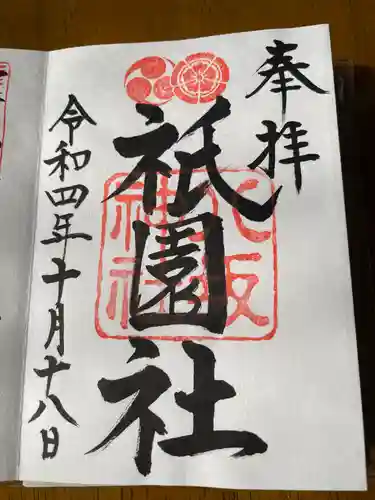 奉拝
八坂
神社
祇園社
令和四年十月十八日